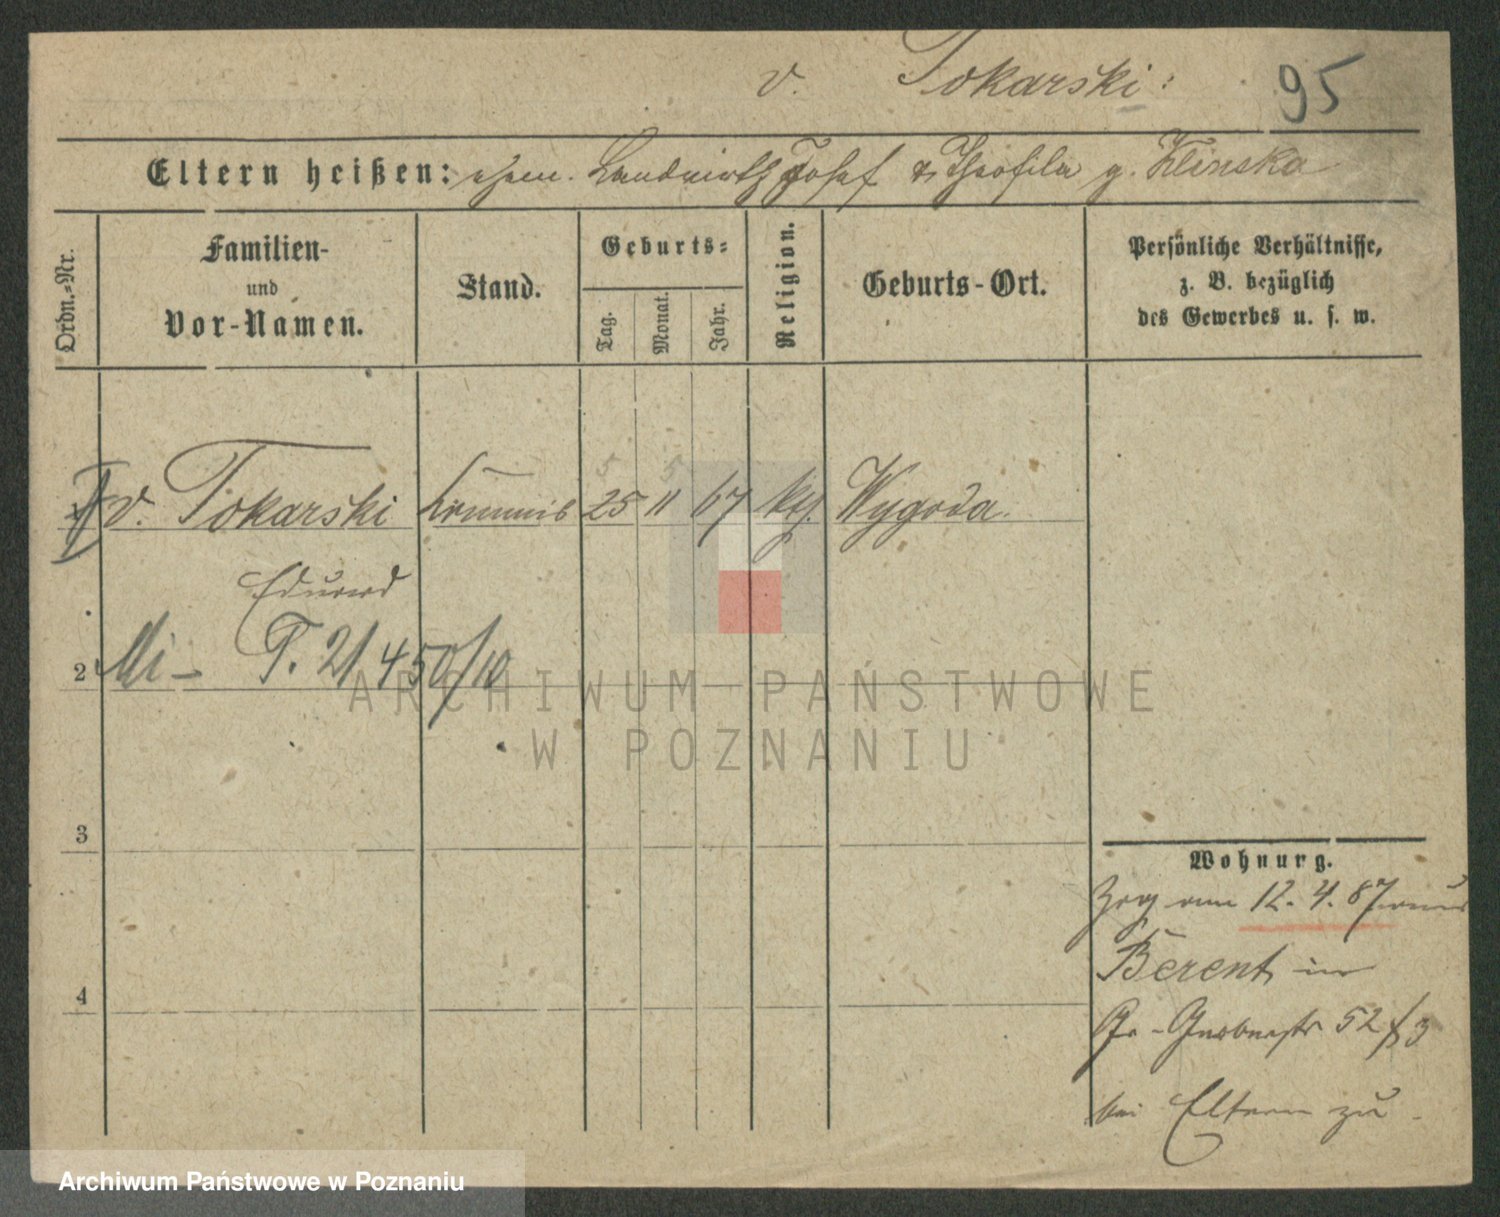 v. Tokarski: 95
Eltern heißen: ehem. Landwirth Josef & Theofila g. Klinska
Ordn.-Nr.
Familien-
und
Vor-Namen.
Stand.
Geburts-
Tag.
Monat.
Jahr.
Religion.
Geburts-Ort.
Persönliche Verhältnisse,
z. B. bezüglich
des Gewerbes u. s. w.
5 5
v. Tokarski Commis 25 11 67 kth. Wygoda.
Eduard
2 Mi- T. 21 450/10
ARCHIWUM PAŃSTWOWE
W POZNANIU
3
Wohnung.
Zog am 12. 4. 87 aus
Berent in
4
Gr-Gerberstr 52 f 3
bei Eltern zu
Archiwum Państwowe w Poznaniu